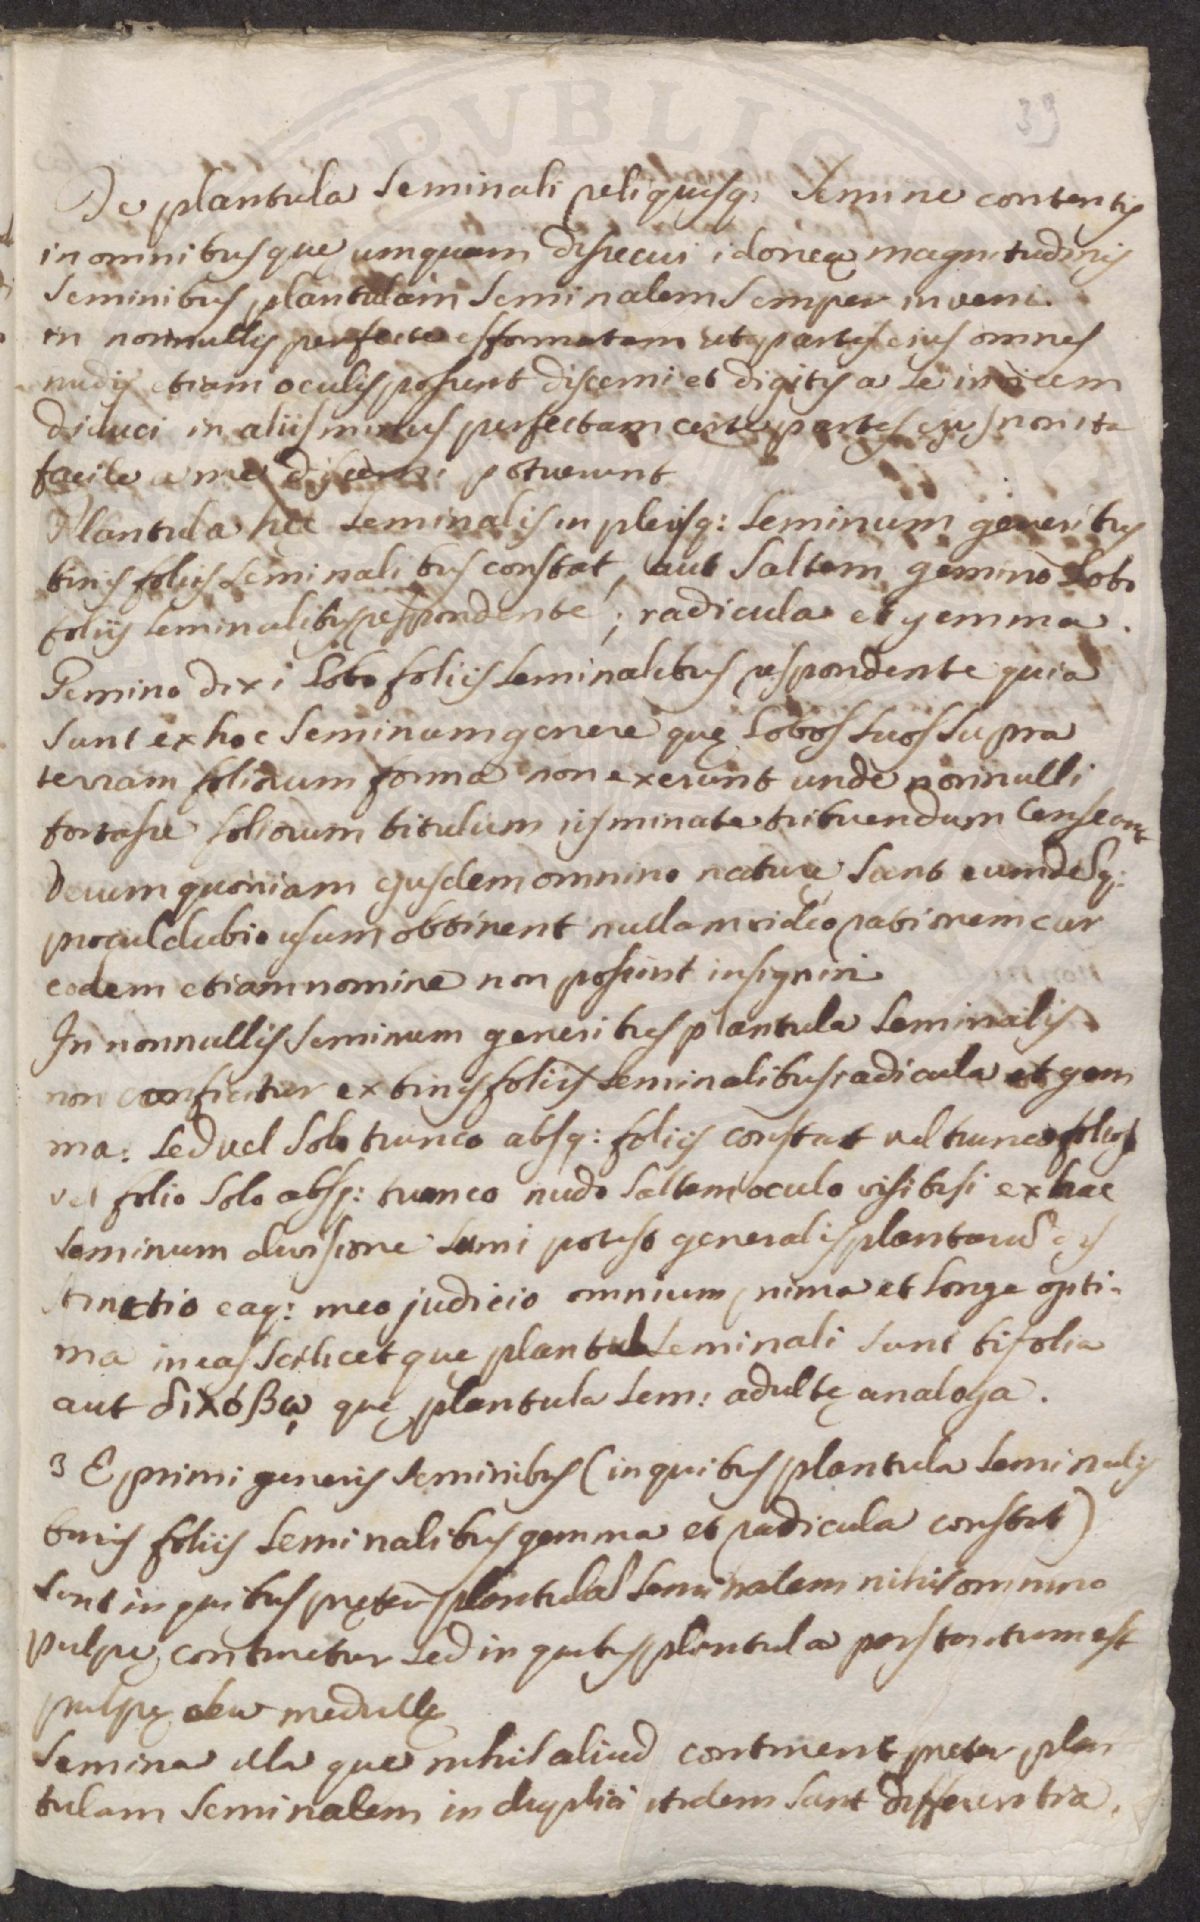 PVBLIC
39
De plantula Seminali reliquisq; Semine contentis
in omnibus quę umquam dissecui idoneę magnitudinis
Seminibus plantulam Seminalem Semper inveni.
in nonnullis perfecte efformatam ut partes ejus omnes
nudis etiam oculis possent discerni et digitis a se invicem
diduci in aliis minus perfectam certe partes ejus non ita
facile a me discerni potuerunt
Plantula hęc Seminalis in plerisq: Seminum generibus
binis foliis Seminalibus constat, aut Saltem gemino Lobo
foliis Seminalibus respondente, radicula et gemma.
Gemino dixi Lobo foliis Seminalibus respondente quia
Sunt ex hoc Seminum genere quę Lobos Suos Supra
terram foliorum forma non exerunt unde nonnulli
fortasse foliorum titulum iis minate tribuendum Censeant
Verum quoniam ejusdem omnino naturę Sant eumdēq:
proculdubio usum obtinent nullam video rationem cur
eodem etiam nomine non possint insigniri
In nonnullis Seminum generibus plantula Seminalis
non conficitur ex binis foliis Seminalibus radicula et gem
ma: Sed vel Solo trunco absq: foliis constat vel trunco folioso
vel folio Solo absq: trunco nudo Saltem oculo visibili ex hac
Seminum divisione Sumi potest generalis plantarū dis
tinctio eaq: meo judicio omnium prima et longe opti-
ma in eas Scilicet quę plantula Seminali Sunt bifolia
aut διλόβω quę plantula Sem: adultę analoga.
3 E primi generis Seminibus (in quibus plantula Seminalis
binis foliis Seminalibus gemma et radicula constat)
Sunt in quibus pręter plantulā Seminalem nihil omnino
pulpę continetur Sed in quibus plantula pars tantum est
pulpę seu medullę
Semina illa que nihil aliud continent preter plan
tulam Seminalem in duplici itidem Sunt differentia.